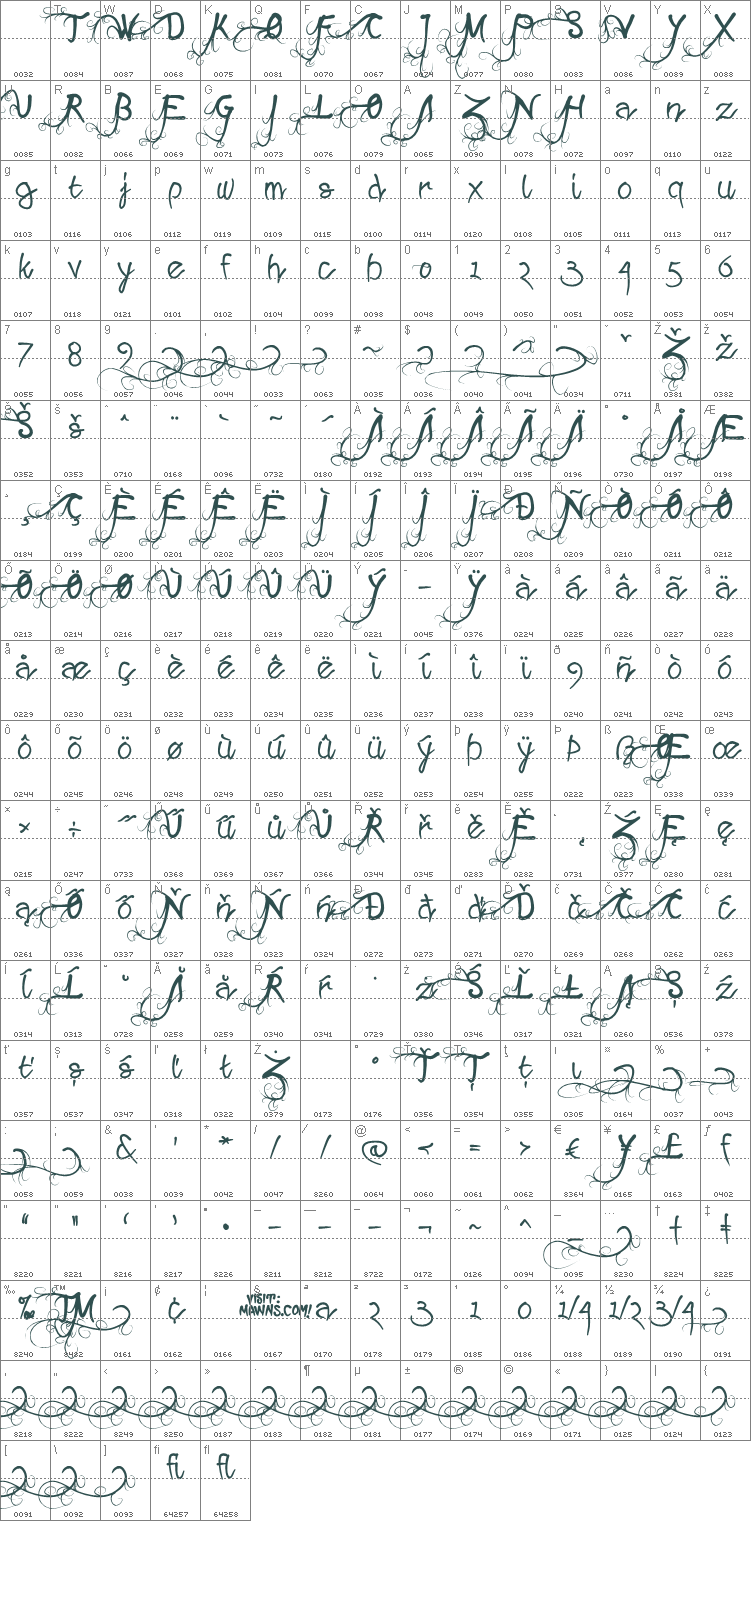 T W D K Q F C J M P S V Y X
0032 0084 0087 0068 0075 0081 0070 0067 0074 0077 0080 0083 0086 0089 0088
U R B E G I L O A Z N H a n z
0085 0082 0066 0069 0071 0073 0076 0079 0065 0090 0078 0072 0097 0110 0122
g t j p w m s d r x l i o q u
0103 0116 0106 0112 0119 0109 0115 0100 0114 0120 0108 0105 0111 0113 0117
k v y e f h c b 0 1 2 3 4 5 6
0107 0118 0121 0101 0102 0104 0099 0098 0048 0049 0050 0051 0052 0053 0054
7 8 9 . , ! ? # $ ( ) " ˇ Ž ž
0055 0056 0057 0046 0044 0033 0063 0035 0036 0040 0041 0034 0711 0381 0382
Š š ˆ ¨ ` ˜ ´ À Á Â Ã Ä ˚ Å Æ
0352 0353 0710 0168 0096 0732 0180 0192 0193 0194 0195 0196 0730 0197 0198
¸ Ç È É Ê Ë Ì Í Î Ï Ð Ñ Ò Ó Ô
0184 0199 0200 0201 0202 0203 0204 0205 0206 0207 0208 0209 0210 0211 0212
Õ Ö Ø Ù Ú Û Ü Ý - Ÿ à á â ã ä
0213 0214 0216 0217 0218 0219 0220 0221 0045 0376 0224 0225 0226 0227 0228
å æ ç è é ê ë ì í î ï ð ñ ò ó
0229 0230 0231 0232 0233 0234 0235 0236 0237 0238 0239 0240 0241 0242 0243
ô õ ö ø ù ú û ü ý þ ÿ Þ ß Œ œ
0244 0245 0246 0248 0249 0250 0251 0252 0253 0254 0255 0222 0223 0338 0339
× ÷ ˝ Ű ű ů Ů Ř ř ě Ě ˛ Ź Ę ę
0215 0247 0733 0368 0369 0367 0366 0344 0345 0283 0282 0731 0377 0280 0281
ą Ő ő Ň ň Ń ń Đ đ ď Ď č Č Ć ć
0261 0336 0337 0327 0328 0323 0324 0272 0273 0271 0270 0269 0268 0262 0263
ĺ Ĺ ˘ Ă ă Ŕ ŕ ˙ ż Ś Ľ Ł Ą Ș ź
0314 0313 0728 0258 0259 0340 0341 0729 0380 0346 0317 0321 0260 0536 0378
ť ș ś ľ ł Ż ° Ť Ţ ţ ı ¤ % +
0357 0537 0347 0318 0322 0379 0173 0176 0356 0354 0355 0305 0164 0037 0043
: ; & ' * / ⁄ @ < = > € ¥ £ ƒ
0058 0059 0038 0039 0042 0047 8260 0064 0060 0061 0062 8364 0165 0163 0402
“ ” ‘ ’ • – — − ¬ ~ ^ _ … † ‡
8220 8221 8216 8217 8226 8211 8212 8722 0172 0126 0094 0095 8230 8224 8225
‰ ™ ¡ ¢ ¦ § ª ² ³ ¹ º ¼ ½ ¾ ¿
VISIT:
MAWNS.COM!
8240 8482 0161 0162 0166 0167 0170 0178 0179 0185 0186 0188 0189 0190 0191
‚ „ ‹ › » · ¶ µ ± ® © « } | {
8218 8222 8249 8250 0187 0183 0182 0181 0177 0174 0169 0171 0125 0124 0123
[ \ ] fi fl
0091 0092 0093 64257 64258